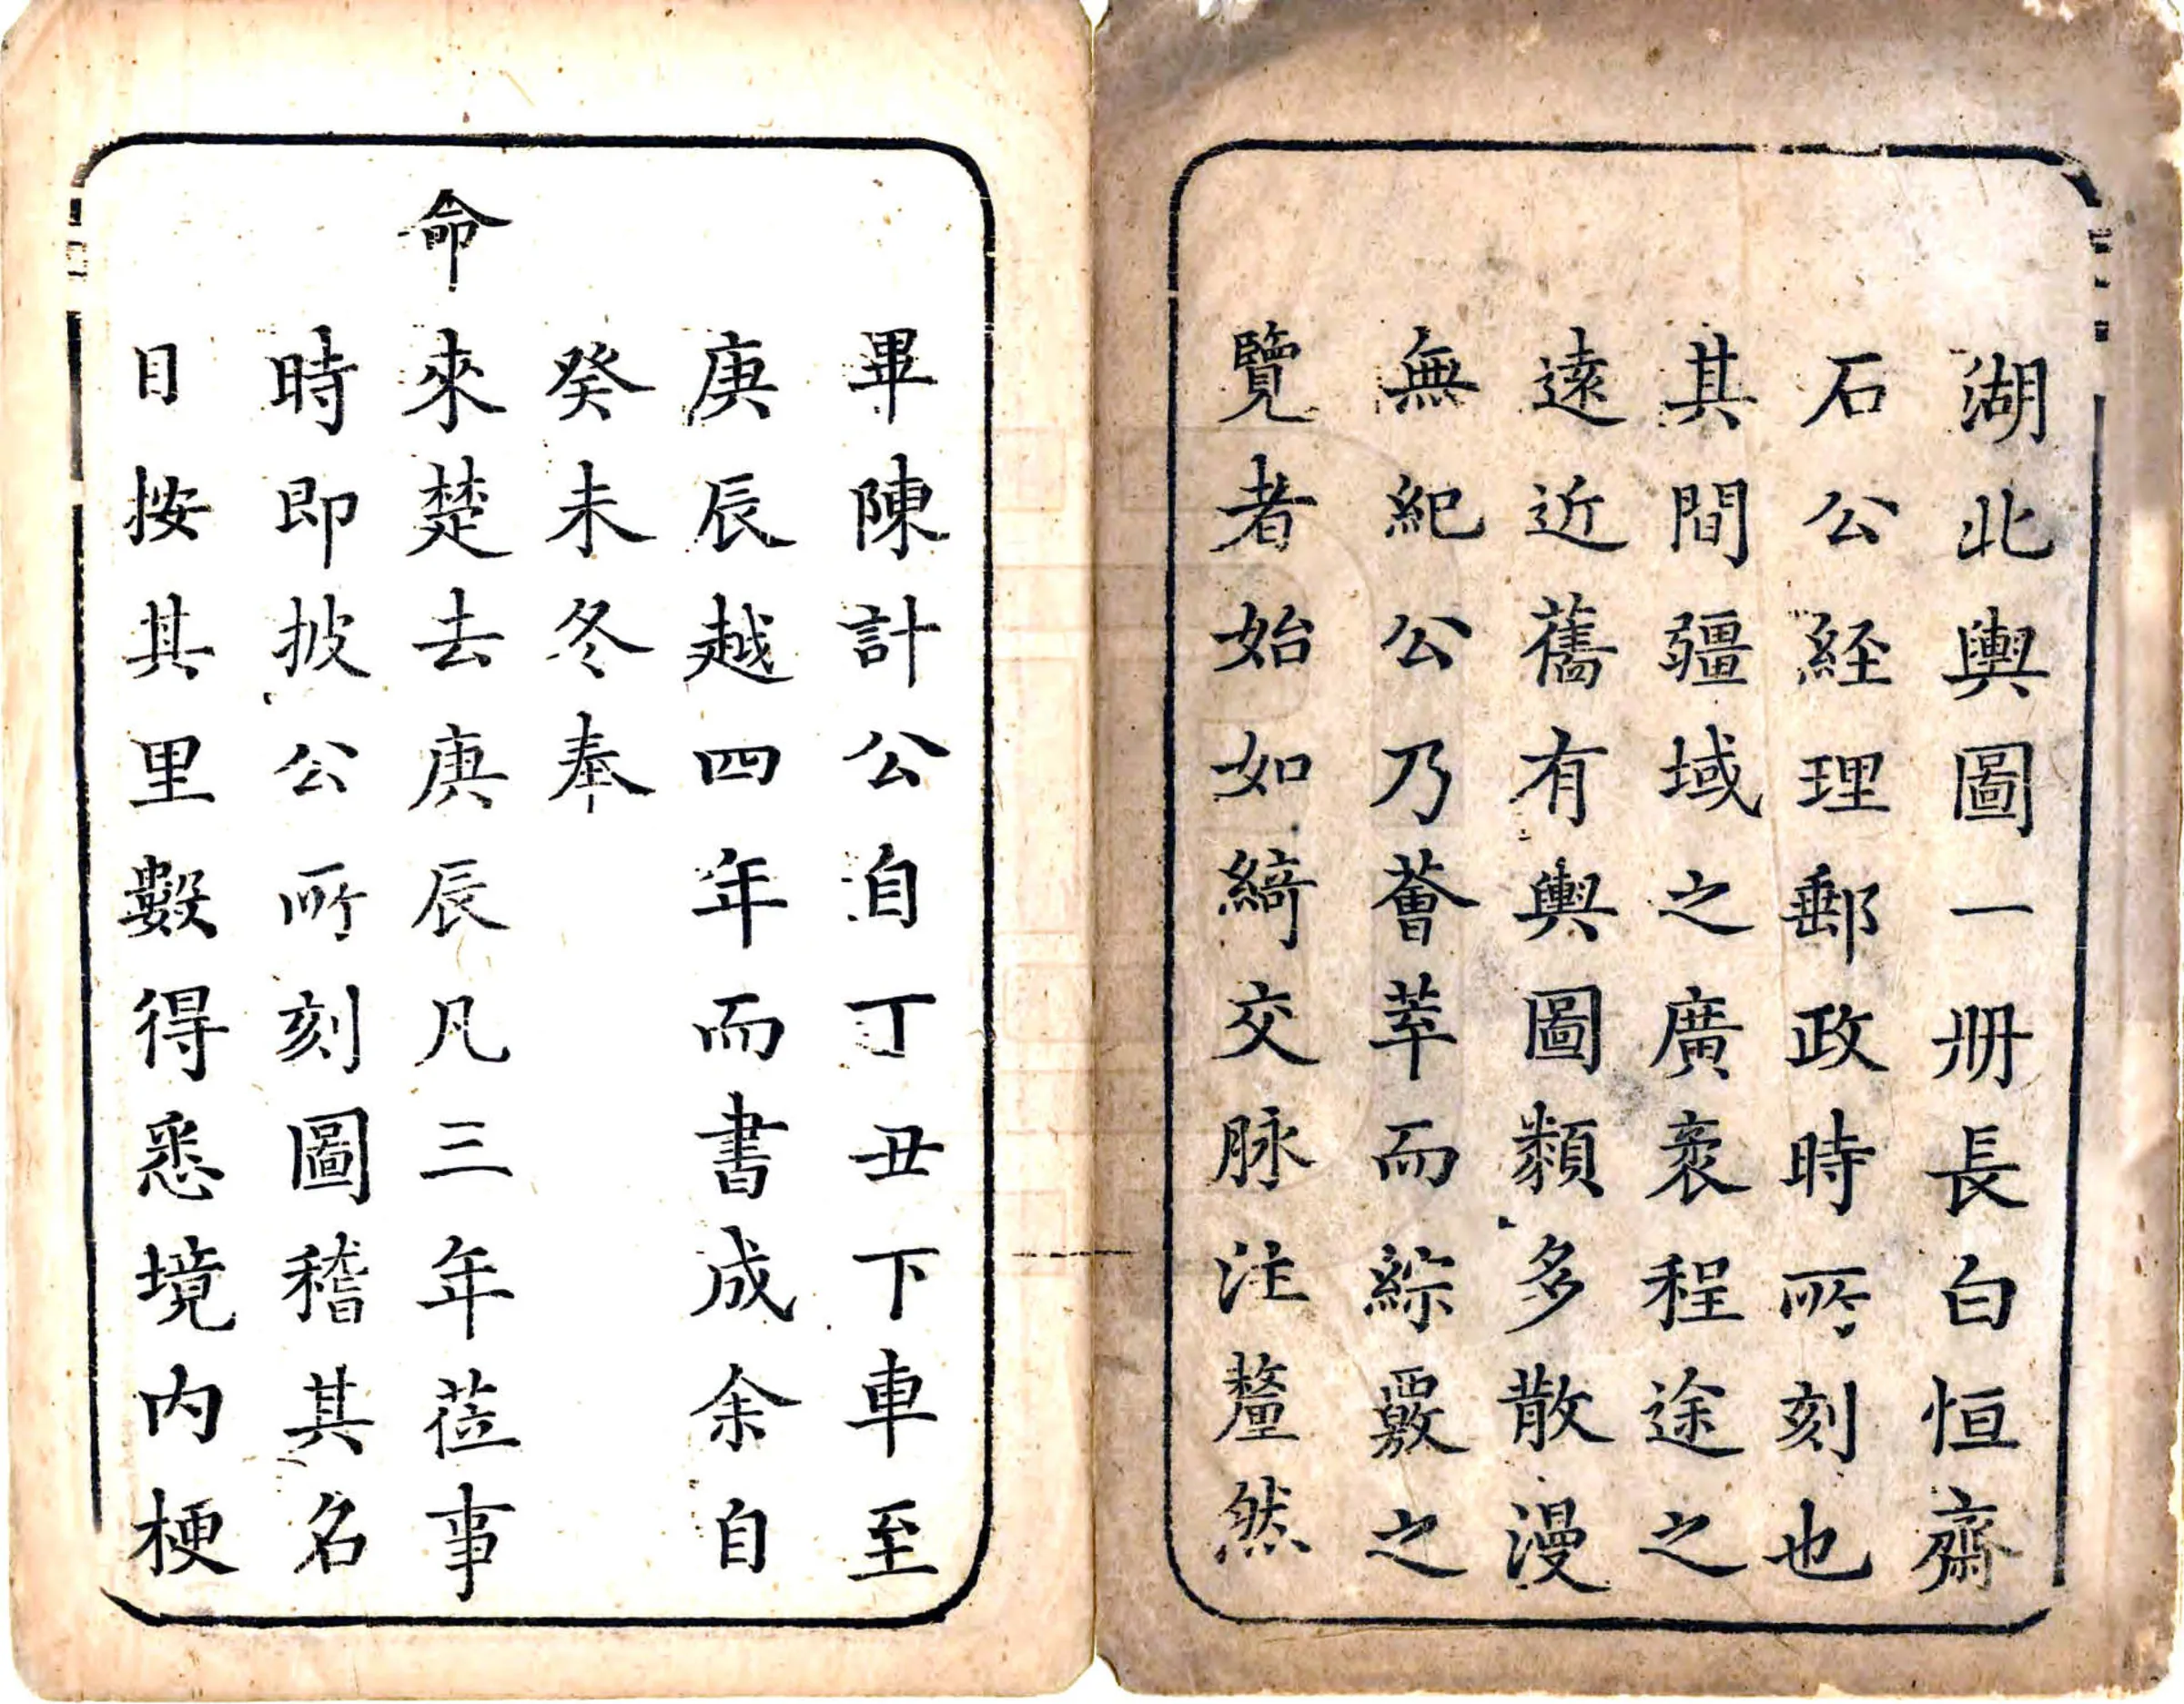 湖北輿圖一册長白恒齋
石公経理郵政時所刻也
其間疆域之廣袤程途之
遠近舊有輿圖類多散漫
無紀公乃薈萃而綜覈之
覽者始如綺交脉注釐然
畢陳計公自丁丑下車至
庚辰越四年而書成余自
癸未冬奉
命來楚去庚辰凡三年莅事
時即披公所刻圖稽其名
目按其里數得悉境内梗